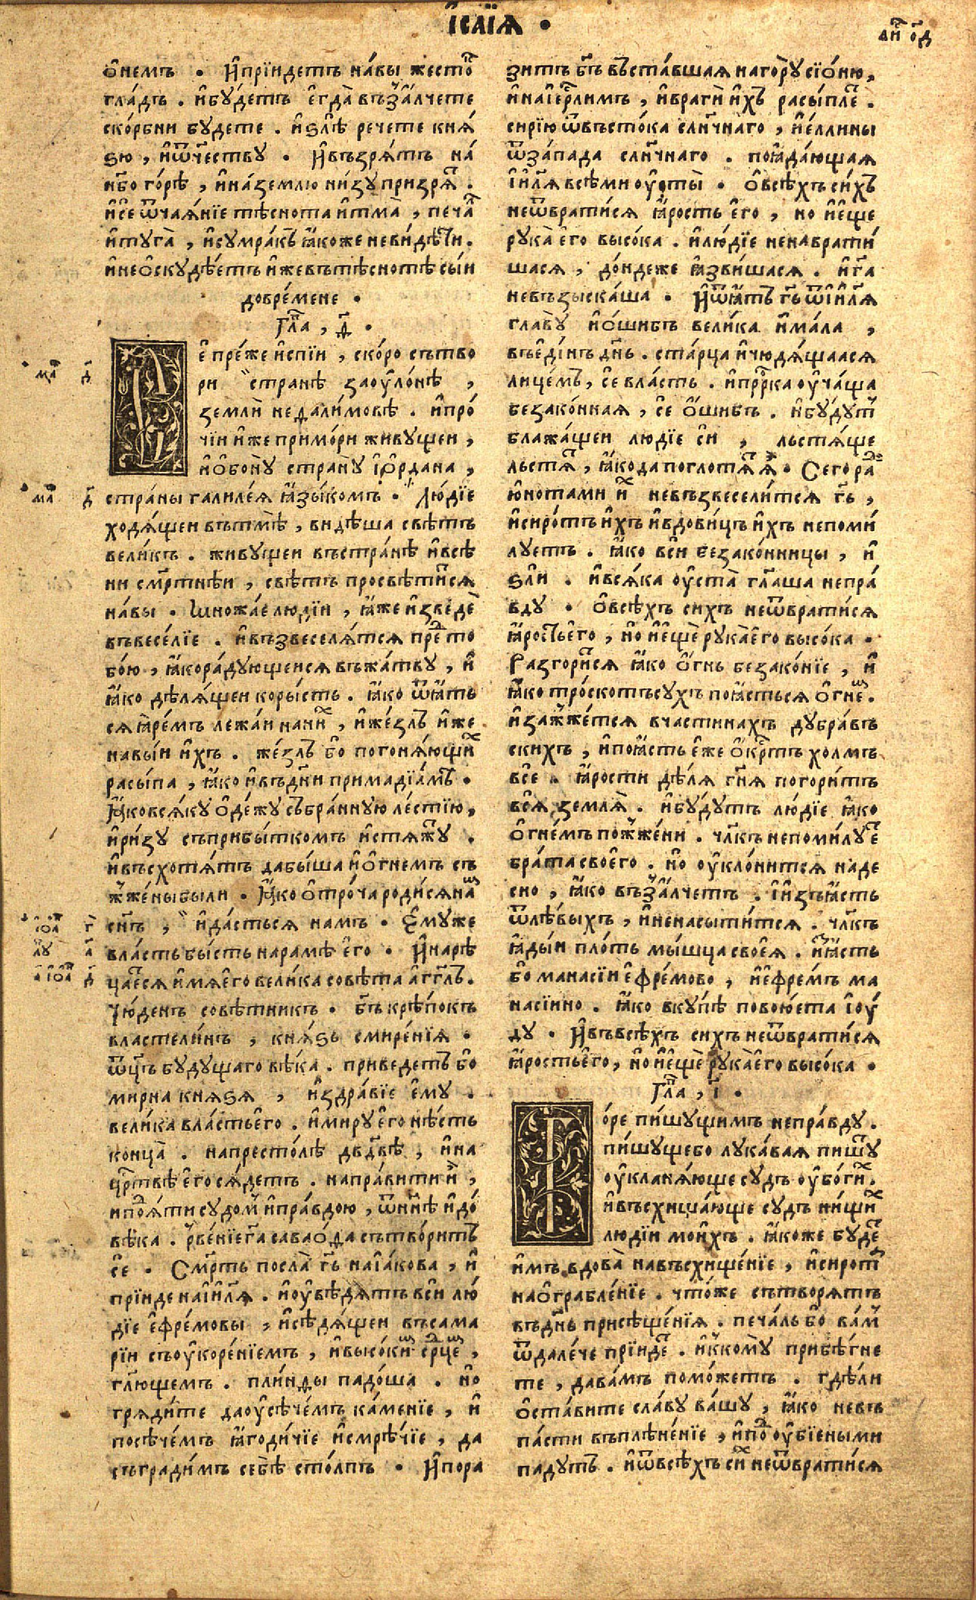 І҆са́їѧ •
о҆немъ • И҆ прїидетъ на́вы жесто
гла́дъ . и҆бу́детъ є҆гда̀ въза́лчете
ско́рбни бу́дете . и҆ ѕлѣ̀ рече́те кнѧ́
ѕю , и҆ ѿче́ству • И҆ възрѧ́тъ на́
небо го́рѣ , и҆ на́землю ни́зу призрѧ .
и҆ се ѿчаѧ́нїе тѣснота и҆ тма̀ , печа
и҆ туга̀ , и҆ сумра́къ ꙗ҆́коже неви́дѣти .
и҆ не ѻ҆скудѣ́етъ и҆́же въ тѣснотѣ сы́и
до вре́мене •
Гла , д҃ •
Сѐ пре́же и҆спі́и , ско́ро сътво
ри странѣ̀ заѹло́нѣ ,
землѝ недали́мовѣ . и҆ про́
чїи и҆́же примо́ри живу́щеи ,
и҆ ѻ҆бону̀ страну̀ і҆ѡрда́на ,
страны̀ галиле́ѧ ꙗ҆зы́комъ . Лю́дїе
ходѧ́щеи въ тмѣ̀ , ви́дѣша свѣ́тъ
вели́къ . живу́щеи въ странѣ̀ и҆ в сѣ́
ни сме́ртнѣи , свѣ́тъ просвѣти́сѧ
на́вы • Мно́жае лю́дїи , ꙗ҆́же и҆зведѐ
въ весе́лїе . и҆ възвеселѧ́тсѧ пре то
бо́ю , ꙗ҆́ко ра́дующеисѧ въ жа́тву , и҆
ꙗ҆́ко дѣлѧ́щеи коры́сть . ꙗ҆́ко ѿꙗ҆́тъ
сѧ ꙗ҆ре́мъ лежа́и на ни , и҆ же́злъ и҆́же
на вы́и и҆́хъ . же́злъ бо погонѧ́ющи
расы́па , ꙗ҆́ко и҆ въ дни примадїа́мъ .
Ꙗ҆́ко всѧ́ку ѻ҆де́жу събра́нную ле́стїю ,
и҆ ри́зу съ прибы́ткомъ и҆стѧ́жу .
и҆ въсхотѧ́тъ дабы́ша и҆ ѻ҆гнемъ съ
жже́ны бы́ли • Ꙗ҆́ко ѻ҆троча роди́сѧ на
сн҃ъ , и҆ да́стьсѧ намъ • Є҆му́же
вла́сть бы́сть на ра́мѣ є҆го̀ • И҆ нарѣ
ца́етсѧ и҆́мѧ є҆го̀ вели́ка совѣ́та а҆гг҃лъ .
чю́денъ совѣ́тникъ . бг҃ъ крѣ́покъ
власте́линъ , кнѧ́ѕь смире́нїѧ •
ѿц҃ъ бу́дущаго вѣ́ка . приведе́тъ бо
ми́рна кнѧ́ѕѧ , и҆ здра́вїе є҆му̀ .
вели́ка вла́сть є҆го̀ . и҆ ми́ру є҆го̀ нѣ́сть
конца̀ . на престо́лѣ дв҃дѣ , и҆ на
црт҃вѣ є҆го̀ сѧ́детъ . напра́вити ѝ ,
и҆ поѧ́ти судо́м и҆ пра́вдою , ѿ нн҃ѣ и҆ до́
вѣ́ка . рве́нїе га саваѻ҆да сътвори́тъ
сѐ • Сме́рть посла̀ гь на і҆а́кова , и҆
прїи́де на і҆и҃лѧ . и҆ ѹ҆вѣ́дѧтъ вси лю́
дїе є҆фре́мовы , и҆ сѣдѧ́щеи въ сама
рїи съ ѹ҆коре́нїемъ , и҆ высо́ки срц҃е ,
гл҃ющемъ . пли́нды падо́ша . но
грѧди́те да ѹ҆сѣче́мъ ка́менїе , и҆
посѣче́мъ ꙗ҆годи́чїе и҆ смре́чїе , да
съгради́мъ себѣ̀ сто́лпъ • И҆ пора
зи́тъ бг҃ъ въста́вшаѧ на го́ру сїо́ню ,
и҆ на і҆ер҃лимъ , и҆ врагѝ и҆́хъ расы́пле .
сирі́ю ѿ въсто́ка сл҃нчнаго , и҆ е́ллины
ѿ за́пада сл҃нчнаго . поꙗ҆да́ющаѧ
і҆и҃лѧ всѣ́ми ѹ҆сты̀ . ѻ҆ всѣ́хъ си́хъ
не ѿврати́сѧ ꙗ҆́рость є҆го̀ , но и҆ е҆ще
рука̀ є҆го̀ высо́ка . и҆ лю́дїе не наврати́
шасѧ , до́ндеже ꙗ҆зви́шасѧ . и҆ га
не възыска́ша • И҆ ѿꙗ҆́тъ гь ѿ і҆и҃лѧ
главу̀ и҆ о҆ши́бъ вели́ка и҆ ма́ла ,
въ е҆ди́нъ дн҃ь . ста́рца и҆ чюдѧ́щаасѧ
лице́мъ , се вла́сть . и҆ прр҃ка ѹ҆ча́ща
безако́ннаѧ , се о҆ши́бъ . и҆ бу́дутъ
блажа́щеи лю́дїе си , льстѧ́ще
льстѧ , ꙗ҆́ко да поглотѧ ѧ . Сего ра
ю҆нотами и не възвесели́тсѧ гь ,
и҆ сиро́тъ и҆́хъ и҆ вдови́цъ и҆́хъ не поми́
луетъ . ꙗ҆́ко вси безако́нницы , и҆
ѕли . и҆ всѧ́ка ѹ҆ста̀ глаша непра́
вду • ѻ҆ всѣ́хъ си́хъ не ѿврати́сѧ
ꙗ҆́рость є҆го̀ , но и҆ ещѐ рука̀ є҆го̀ высо́ка •
Разгори́сѧ ꙗ҆́ко ѻ҆́гнь безако́нїе , и҆
ꙗ҆́ко тро́скотъ су́хъ поꙗ҆́стьсѧ ѻ҆гне .
и҆ зажже́тсѧ в частинахъ дубра́въ
скихъ , и҆ поꙗ҆́сть е҆́же ѻ҆́крстъ хо́лмъ
все . ꙗ҆́рости дѣ́лѧ гнѧ погори́тъ
всѧ̀ землѧ̀ . и҆ бу́дутъ лю́дїе ꙗ҆́ко
ѻ҆гне́мъ пожже́ни . чл҃къ не поми́луе
бра́та своего̀ . но ѹ҆клони́тсѧ на де
сно , ꙗ҆́ко възалче́тъ . і҆ изъꙗ҆́сть
ѿ лѣ́выхъ , и҆ не насы́титсѧ . чл҃къ
ꙗ҆ды́и пло́ть мы́шца своеѧ̀ . и҆ꙗ҆́сть
бо манасі́и є҆фре́мово , и҆ є҆фре́мъ ма
насі́ино . ꙗ҆́ко вку́пѣ повою́ета і҆оу́
ду • И҆ въ всѣ́хъ си́хъ не ѿврати́сѧ
ꙗ҆́рость є҆го̀ , но и҆ ещѐ рука̀ є҆го̀ высо́ка •
Гла , і҃ •
Го́ре пи́шущимъ непра́вду .
пи́шуще бо лука́ваѧ пишу
ѹ҆кланѧ́юще су́дъ ѹ҆бо́ги .
и҆ въсхища́юще су́дъ ни́щи
лю́дїи мои́хъ . ꙗ҆́коже бу́де
и҆мъ вдова̀ на въсхище́нїе , и҆ сирот
на ѻ҆грабле́нїе . что́же сътворѧ́тъ
въ дн҃ь присѣще́нїѧ . печа́ль бо ва́м
ѿ дале́че прїи́де . и҆ к кому̀ прибѣ́гне
те , да ва́мъ помо́жетъ . гдѣ́ли
ѻ҆ста́вите сла́ву ва́шу , ꙗ҆́ко не въ
па́сти въ плѣне́нїе , и҆ по ѹ҆бїе́ными
паду́тъ . и҆ ѿ всѣ́хъ си не ѿврати́сѧ